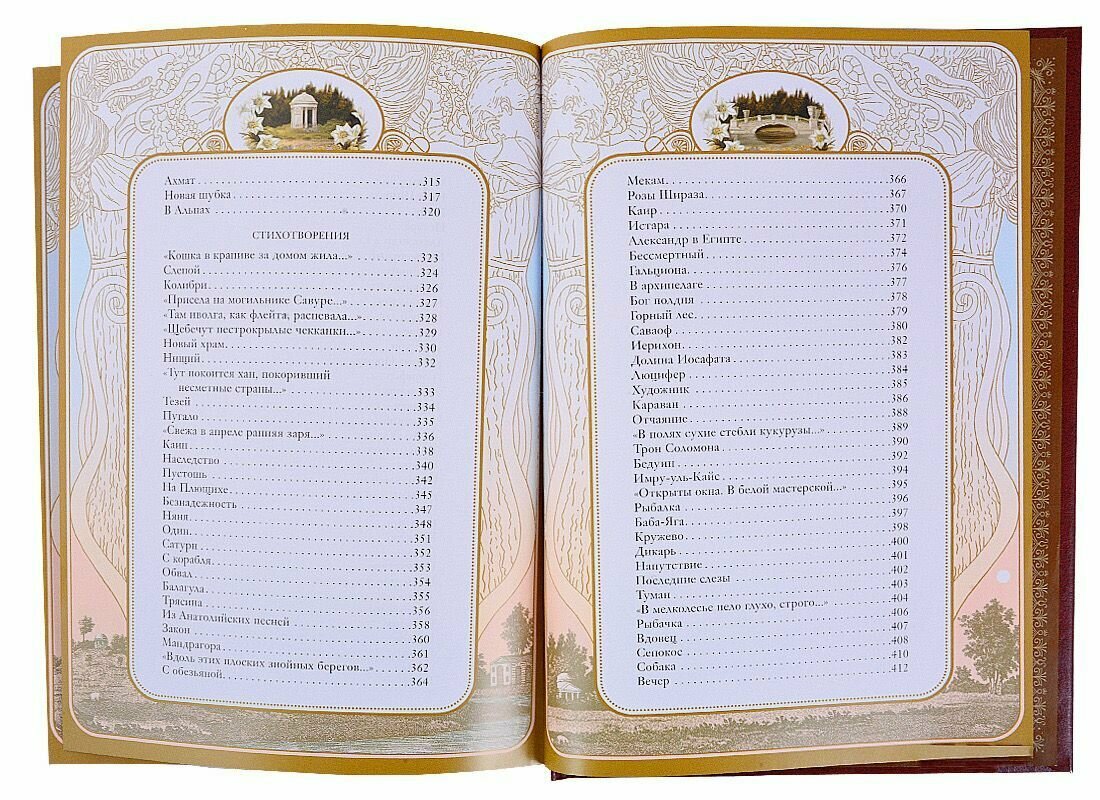 Ахмат . . . . . . . . . . 315
Новая шубка . . . . . . . . . . 317
В Альпах . . . . . . . . . . 320
СТИХОТВОРЕНИЯ
«Кошка в крапиве за домом жила...» . . . . . . . . . . 323
Слепой . . . . . . . . . . 324
Колибри . . . . . . . . . . 326
«Присела на могильнике Савуре...» . . . . . . . . . . 327
«Там иволга, как флейта, распевала...» . . . . . . . . . . 328
«Щебечут пестрокрылые чекканки...» . . . . . . . . . . 329
Новый храм . . . . . . . . . . 330
Нищий . . . . . . . . . . 332
«Тут покоится хан, покоривший
несметные страны...» . . . . . . . . . . 333
Тезей . . . . . . . . . . 334
Пугало . . . . . . . . . . 335
«Свежа в апреле ранняя заря...» . . . . . . . . . . 336
Каин . . . . . . . . . . 338
Наследство . . . . . . . . . . 340
Пустошь . . . . . . . . . . 342
На Плющихе . . . . . . . . . . 345
Безнадежность . . . . . . . . . . 347
Няня . . . . . . . . . . 348
Один . . . . . . . . . . 351
Сатурн . . . . . . . . . . 352
С корабля . . . . . . . . . . 353
Обвал . . . . . . . . . . 354
Балагула . . . . . . . . . . 355
Трясина . . . . . . . . . . 356
Из Анатолийских песней . . . . . . . . . . 358
Закон . . . . . . . . . . 360
Мандрагора . . . . . . . . . . 361
«Вдоль этих плоских знойных берегов...» . . . . . . . . . . 362
С обезьяной . . . . . . . . . . 364
Мекам . . . . . . . . . . 366
Розы Шираза . . . . . . . . . . 367
Каир . . . . . . . . . . 370
Истара . . . . . . . . . . 371
Александр в Египте . . . . . . . . . . 372
Бессмертный . . . . . . . . . . 374
Гальциона . . . . . . . . . . 376
В архипелаге . . . . . . . . . . 377
Бог полдня . . . . . . . . . . 378
Горный лес . . . . . . . . . . 379
Саваоф . . . . . . . . . . 380
Иерихон . . . . . . . . . . 382
Долина Иосафата . . . . . . . . . . 383
Люцифер . . . . . . . . . . 384
Художник . . . . . . . . . . 385
Караван . . . . . . . . . . 386
Отчаяние . . . . . . . . . . 388
«В полях сухие стебли кукурузы...» . . . . . . . . . . 389
Трон Соломона . . . . . . . . . . 390
Бедуин . . . . . . . . . . 392
Имру-уль-Кайс . . . . . . . . . . 394
«Открыты окна. В белой мастерской...» . . . . . . . . . . 395
Рыбалка . . . . . . . . . . 396
Баба-Яга . . . . . . . . . . 397
Кружево . . . . . . . . . . 398
Дикарь . . . . . . . . . . 400
Напутствие . . . . . . . . . . 401
Последние слезы . . . . . . . . . . 402
Туман . . . . . . . . . . 403
«В мелколесье пело глухо, строго...» . . . . . . . . . . 404
Рыбачка . . . . . . . . . . 406
Вдовец . . . . . . . . . . 407
Сенокос . . . . . . . . . . 408
Собака . . . . . . . . . . 410
Вечер . . . . . . . . . . 412